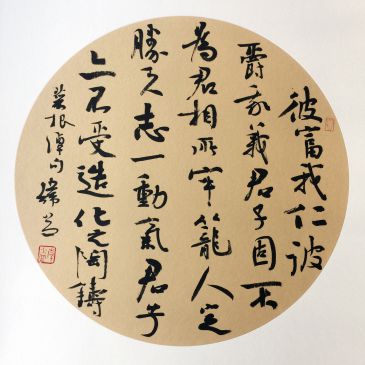 彼富我仁彼
爵我義君子固不
為君相所牢籠人定
勝天志一動氣君子
亦不受造化之陶鑄
菜根譚句